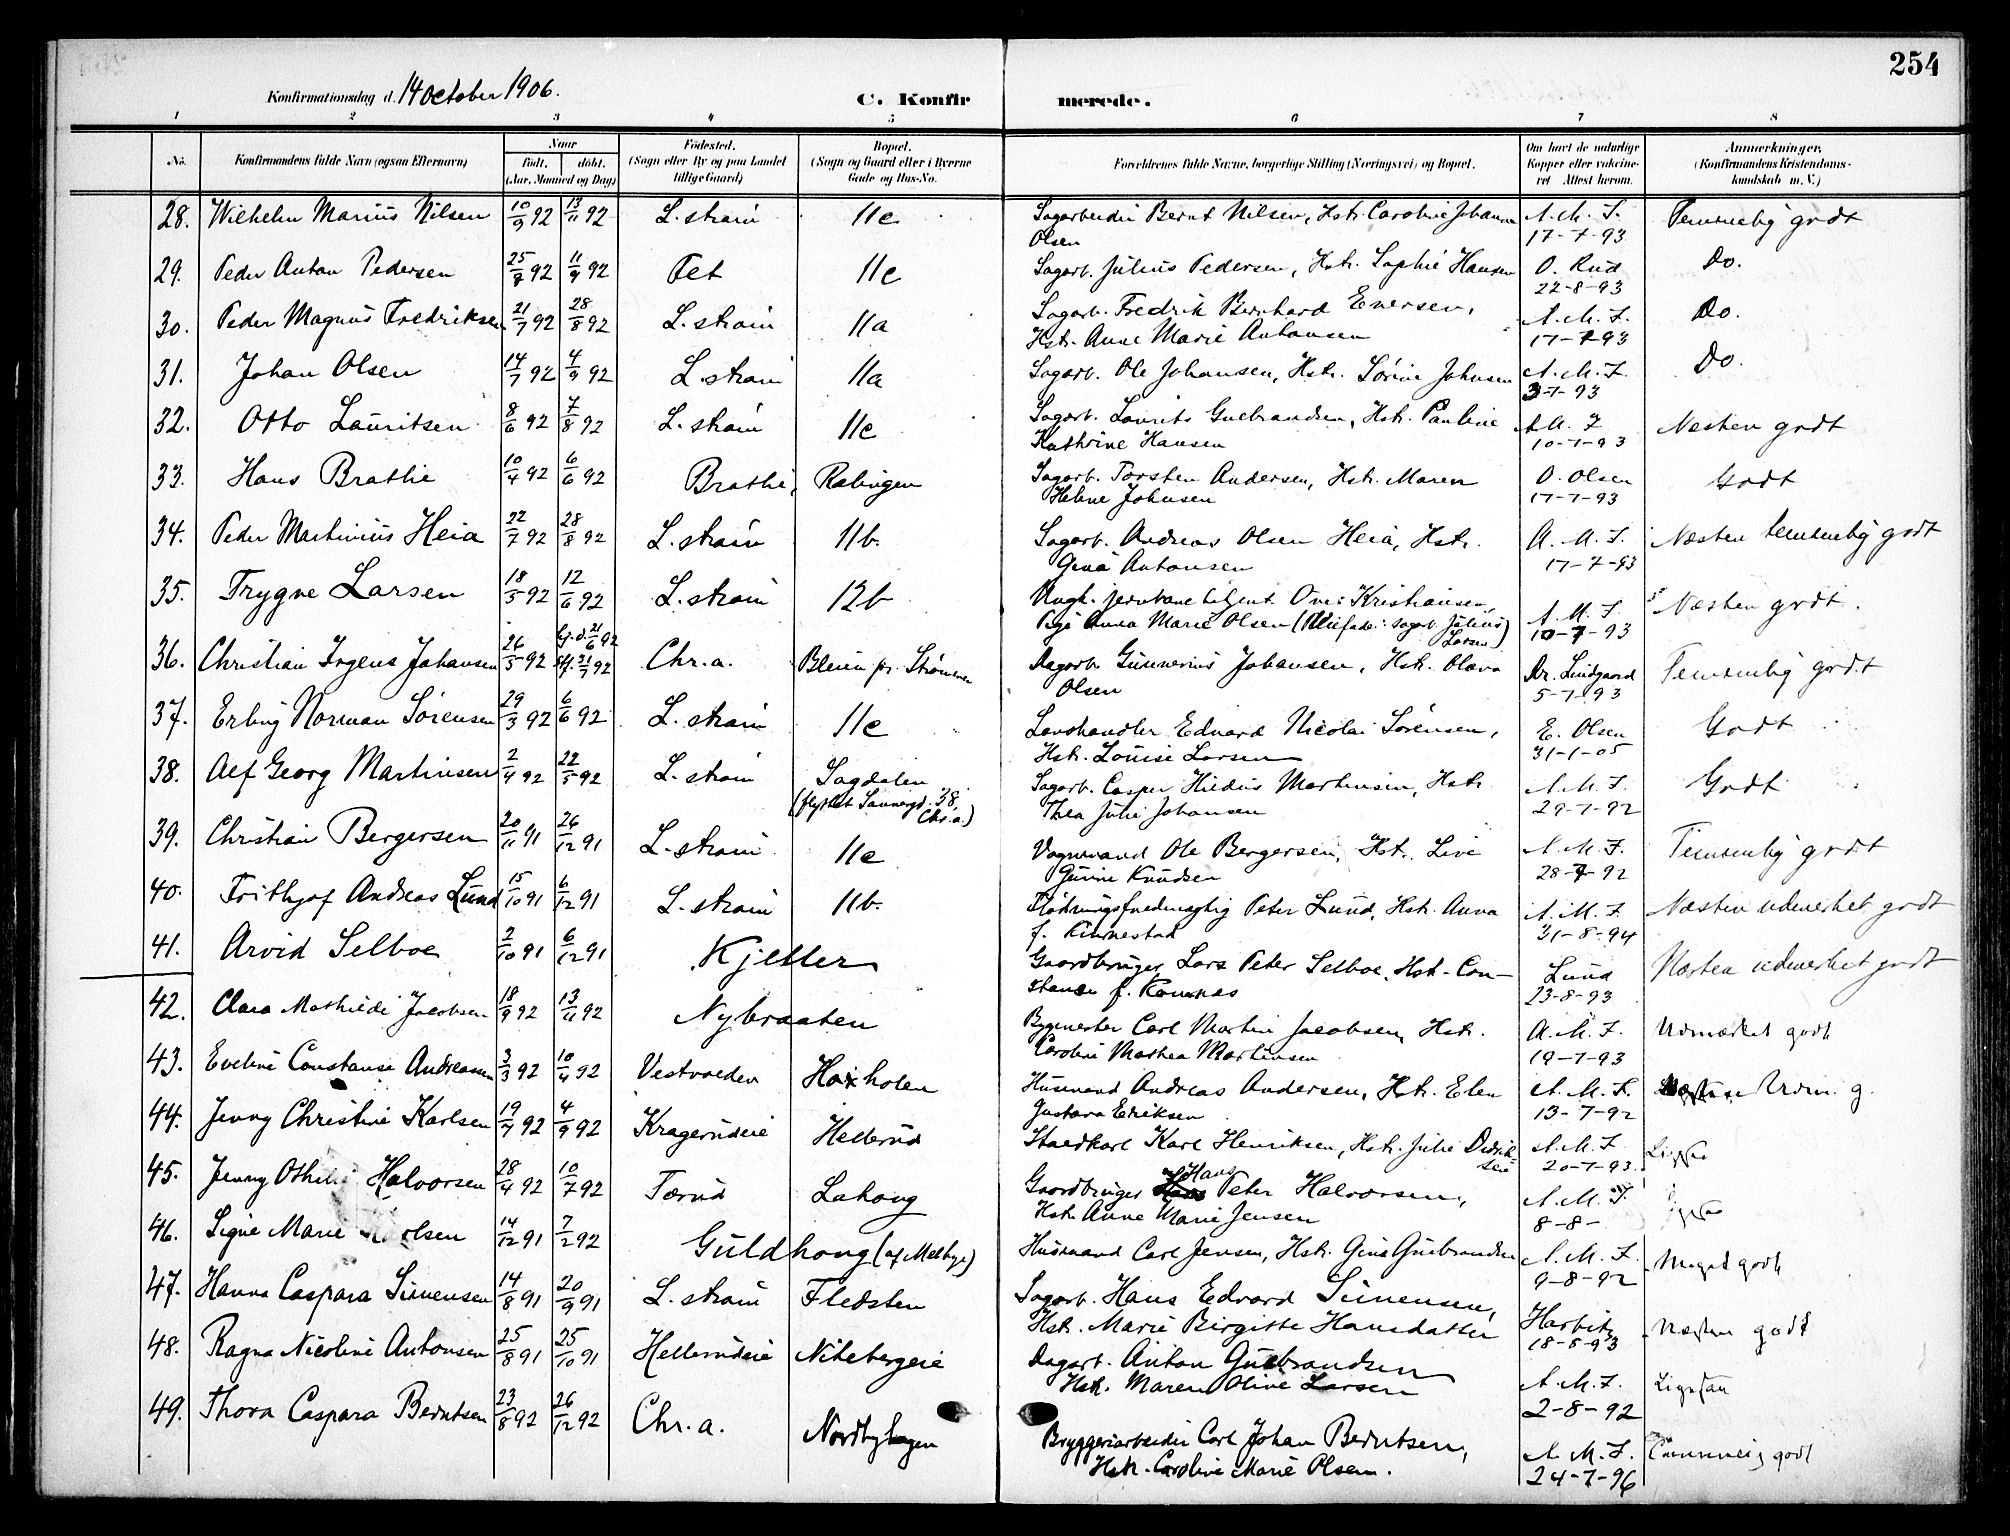 254
Konfirmationsdag d. 14 October 1906. C. Konfirmerede.
1 2 3 4 5 6 7 8
No. Konfirmandens fulde Navn (ogsaa Efternavn) Naar født. døbt. (Aar, Maaned og Dag) Fødested. (Sogn eller By og paa Landet tillige Gaard) Bopæl. (Sogn og Gaard eller i Byerne Gade og Hus-No. Forældrenes fulde Navne, borgerlige Stilling (Næringsvei) og Bopæl. Om havt de naturlige Kopper eller vaksineret Attest herom. Anmærkninger, (Konfirmandens Kristendomskundskab m. V.)
28. Wilhelm Marius Nilsen 10/9 92 13/11 92 L. strøm 11c Sagarbeider Bernt Nilsen, Hstr. Caroline Johanne A. M. F. Temmelig godt
Olsen 17-7-93
29. Peder Anton Pedersen 25/7 92 11/9 92 Fet 11c Sagarb. Julius Pedersen, Hstr. Sophie Hansen O. Rud Do.
22-8-93
30. Peder Magnus Fredriksen 21/7 92 28/8 92 L. strøm 11a Sagarb. Fredrik Bernhard Evensen, A. M. F. Do.
Hstr. Anne Marie Antonsen 17-7-93
31. Johan Olsen 14/7 92 4/9 92 L. strøm 11a Sagarb. Ole Johansen, Hstr. Sørine Johnsen A. M. F. Do.
3-7-93
32. Otto Lauritsen 8/6 92 7/8 92 L. strøm 11c Sagarb. Laurits Gulbrandsen, Hstr. Pauline A. M. F. Næsten godt
Kathrine Hansen 10-7-93
33. Hans Brathe 10/4 92 6/6 92 Brathe, Rælingen Sagarb. Torsten Andersen, Hstr. Maren O. Olsen Godt
Helene Johnsen 17-7-93
34. Peder Martinius Heia 22/7 92 28/8 92 L. strøm 11b. Sagarb. Andreas Olsen Heia, Hstr. A. M. F. Næsten temmelig godt
Gina Antonsen 17-7-93
35. Trygve Larsen 18/5 92 12/6 92 L. strøm 12b Ungk. jernbanebetjent Ove Kristiansen, A. M. F. Næsten godt.
Pige Anna Marie Olsen (Pleiefader: Sagarb. Julius Larsen) 10-7-93
36. Christian Ingens Johansen 26/5 92 Hj.d. 21/6 92 Stf. 31/7 92 Chr.a. pr. Strømmen Dagarb. Gunnerius Johansen, Hstr. Olava Dr. Lindgaard Temmelig godt
Olsen 5-7-93
37. Erling Norman Sørensen 29/3 92 6/6 92 L. strøm 11c Landhandler Edvard Nicolai Sørensen, E. Olsen Godt
Hstr. Louise Larsen 31-1-05
38. Alf Georg Martinsen 2/4 92 22/5 92 L. strøm Sagdalen Sagarb. Casper Hilarius Martinsen, Hstr. A. M. F. Godt
(flyttet Sannergd. 38, Chr.a.) Thea Julie Johansen 29-7-92
39. Christian Bergersen 20/11 91 26/12 91 L. strøm 11c Vognmand Ole Bergersen, Hstr. Live A. M. F. Temmelig godt
Gurine Knudsen 28-7-92
40. Frithjof Andreas Lund 15/10 91 6/12 91 L. strøm 11b. Fløtningsfuldmægtig Peter Lund, Hstr. Anna A. M. F. Næsten udmerket godt
f. Finnestad 31-8-94
41. Arvid Selboe 2/10 91 6/12 91 Kjeller Gaardbruger Lars Peter Selboe, Hstr. Con- Lund Næsten udmerket godt
stance f. Romnæs 23-8-93
42. Clara Mathilde Jacobsen 18/9 92 13/11 92 Nybraaten Bygmester Carl Martin Jacobsen, Hstr. A. M. F. Udmærket godt
Caroline Marthea Martinsen 19-7-93
43. Eveline Constanse Andreassen 3/3 92 10/4 92 Vestvolden Haxholen Husmand Andreas Andersen, Hstr. Elen A. M. F. Næsten Udm. g.
Gustava Eriksen 13-7-92
44. Jenny Christine Karlsen 19/7 92 4/9 92 Kragerudeie Hellerud Staldkarl Karl Henriksen, Hstr. Julie Didriksen A. M. F. Ligesaa
20-7-93.
45. Jenny Othilie Halvorsen 28/4 92 10/7 92 Tærud Lahaug Gaardbruger Hans Peter Halvorsen, A. M. F. Ligesaa
Hstr. Anne Marie Jensen 8-8-
46. Signe Marie Karlsen 14/12 91 7/2 92 Guldhaug (af Melbye) Husmand Carl Jensen, Hstr. Gina Gulbrandsen A. M. F. Meget godt
9-8-92
47. Hanna Caspara Simensen 14/8 91 20/9 91 L. strøm Fledsten Sagarb. Hans Edvard Simensen, Harbitz Næsten godt
Hstr. Marie Birgitte Hansdatter 18-8-93
48. Ragna Nicoline Antonsen 25/8 91 25/10 91 Hellerudeie Nitebergeie Dagarb. Anton Gulbrandsen A. M. F. Ligesaa
Hstr. Maren Olive Larsen 2-8-92
49. Thora Caspara Berntsen 23/8 92 26/12 92 Chr.a. Nordbyhagen Bryggeriarbeider Carl Johan Berntsen, A. M. F. Temmelig godt
Hstr. Caroline Marie Olsen. 24-7-96